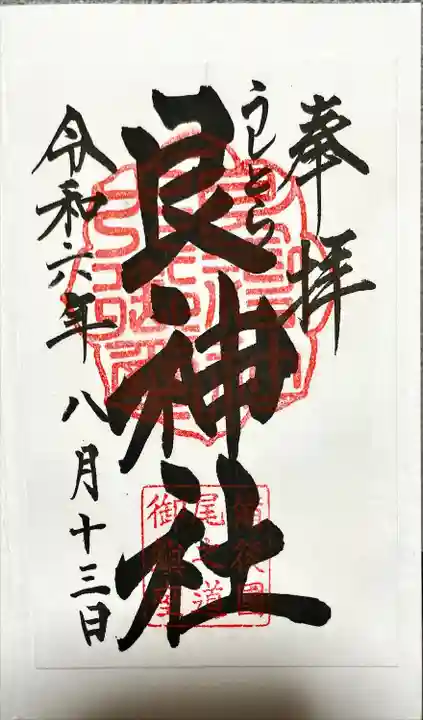 奉拝
うしとら
艮神社
令和六年八月十三日
備後國
尾之道
御鎮座